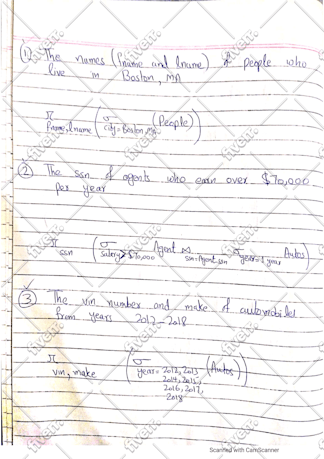 ① The names (fname and lname) of people who
live in Boston, MA
π fname, lname ( σ city = Boston, MA (People) )
② The ssn of agents who earn over $70,000
per year
π ssn ( σ salary > $70,000 Agent ⋈ ssn = Agent.ssn year = 1 year Autos )
③ The vin number and make of automobiles
from years 2012 - 2018
π vin, make ( σ year = 2012, 2013 (Autos) )
2014, 2015,
2016, 2017,
2018
fiverr.
Scanned with CamScanner